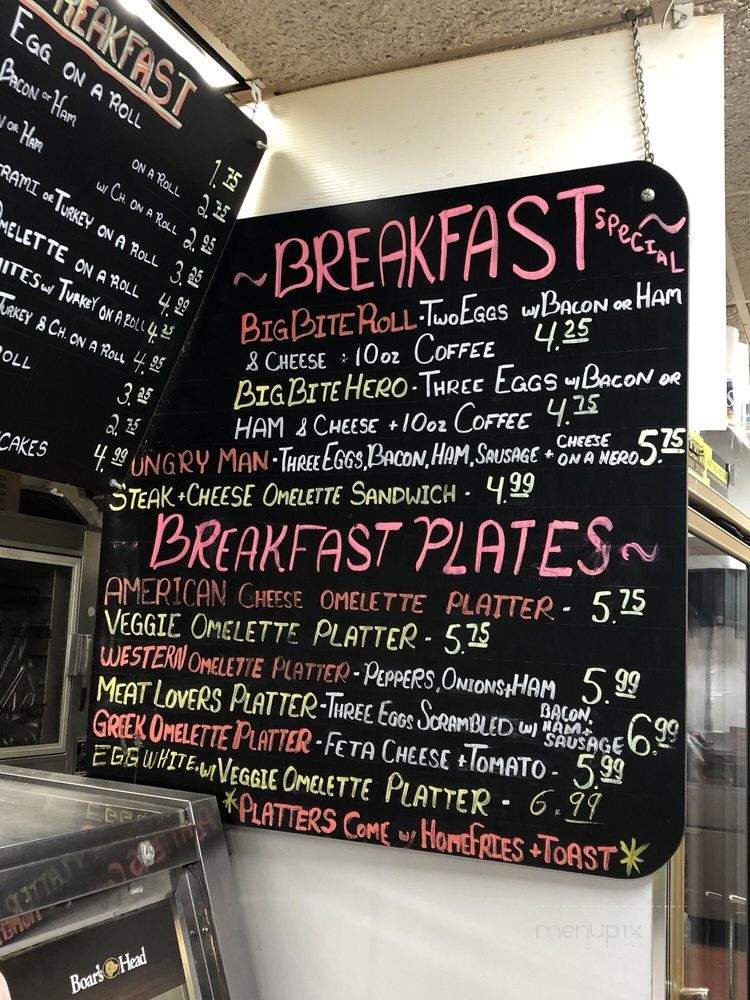 BREAKFAST
EGG ON A ROLL
BACON OR HAM
ON A ROLL 1.75
OR HAM W/ CH. ON A ROLL 2.75
TURKEY ON A ROLL 2.95
OMELETTE ON A ROLL 3.25
W/ TURKEY ON A ROLL 4.99
TURKEY & CH. ON A ROLL 4.25
ROLL 4.95
3.25
2.75
4.99
~BREAKFAST SPECIAL~
BIG BITE ROLL - TWO EGGS W/ BACON OR HAM
& CHEESE + 10oz COFFEE 4.25
BIG BITE HERO - THREE EGGS W/ BACON OR
HAM & CHEESE + 10oz COFFEE 4.75
UNGRY MAN - THREE EGGS, BACON, HAM, SAUSAGE + CHEESE ON A HERO 5.75
STEAK + CHEESE OMELETTE SANDWICH - 4.99
BREAKFAST PLATES~
AMERICAN CHEESE OMELETTE PLATTER - 5.75
VEGGIE OMELETTE PLATTER - 5.75
WESTERN OMELETTE PLATTER - PEPPERS, ONIONS + HAM 5.99
MEAT LOVERS PLATTER - THREE EGGS SCRAMBLED W/ BACON, HAM + SAUSAGE 6.99
GREEK OMELETTE PLATTER - FETA CHEESE + TOMATO - 5.99
EGG WHITE W/ VEGGIE OMELETTE PLATTER - 6.99
*PLATTERS COME W/ HOMEFRIES + TOAST*
Boar's Head
menupix